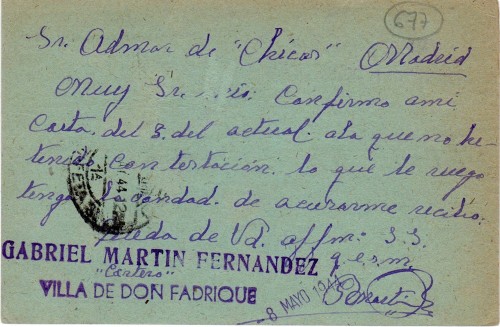 677
Sr. Admor de "Chicas" Madrid
Muy Sr. mio. Confirmo a mi
carta del 3 del actual a la que no he
tenido contestación lo que le ruego
tenga la bondad de acusarme recibo.
queda de Vd. affmo. S.S.
q.e.s.m.
GABRIEL MARTIN FERNANDEZ
"Cartero"
VILLA DE DON FADRIQUE
8 MAYO 194